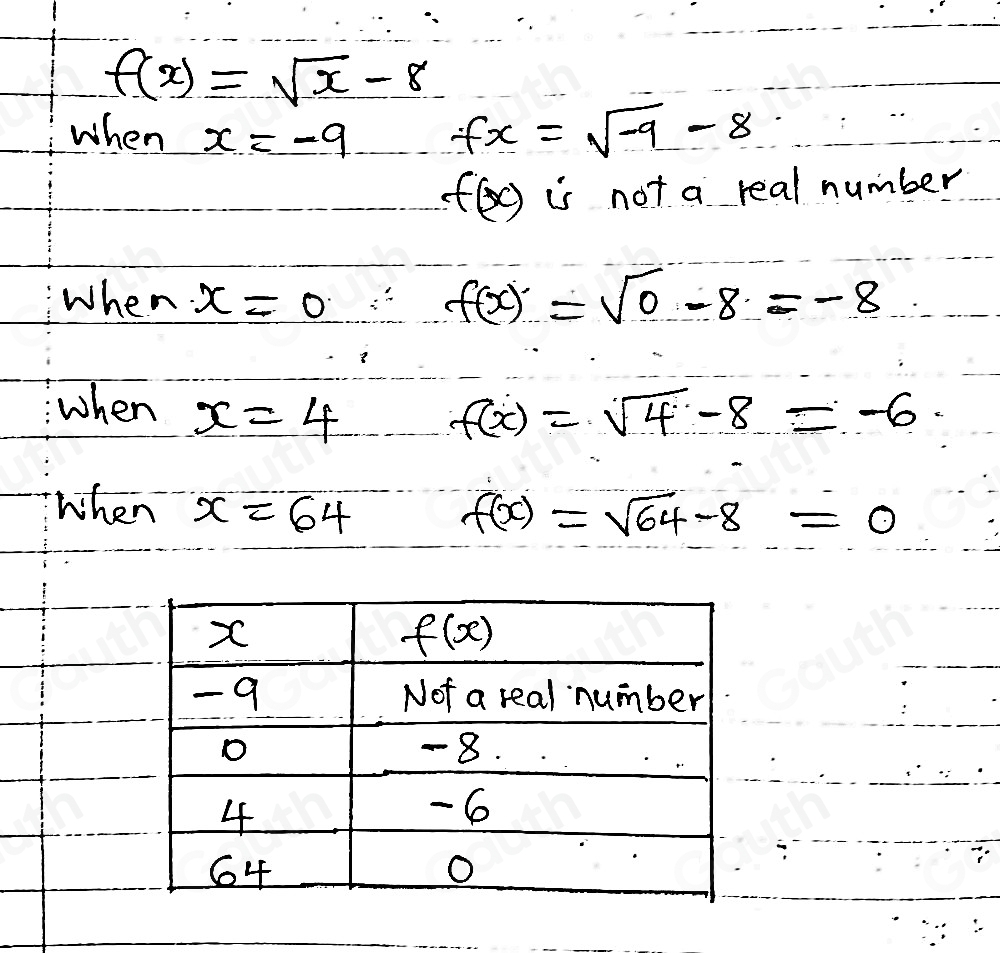 f(x) = √x - 8
when x = -9 fx = √-9 - 8
f(x) is not a real number
when x = 0 f(x) = √0 - 8 = -8
when x = 4 f(x) = √4 - 8 = -6
when x = 64 f(x) = √64 - 8 = 0
x f(x)
-9 Not a real number
0 -8
4 -6
64 0